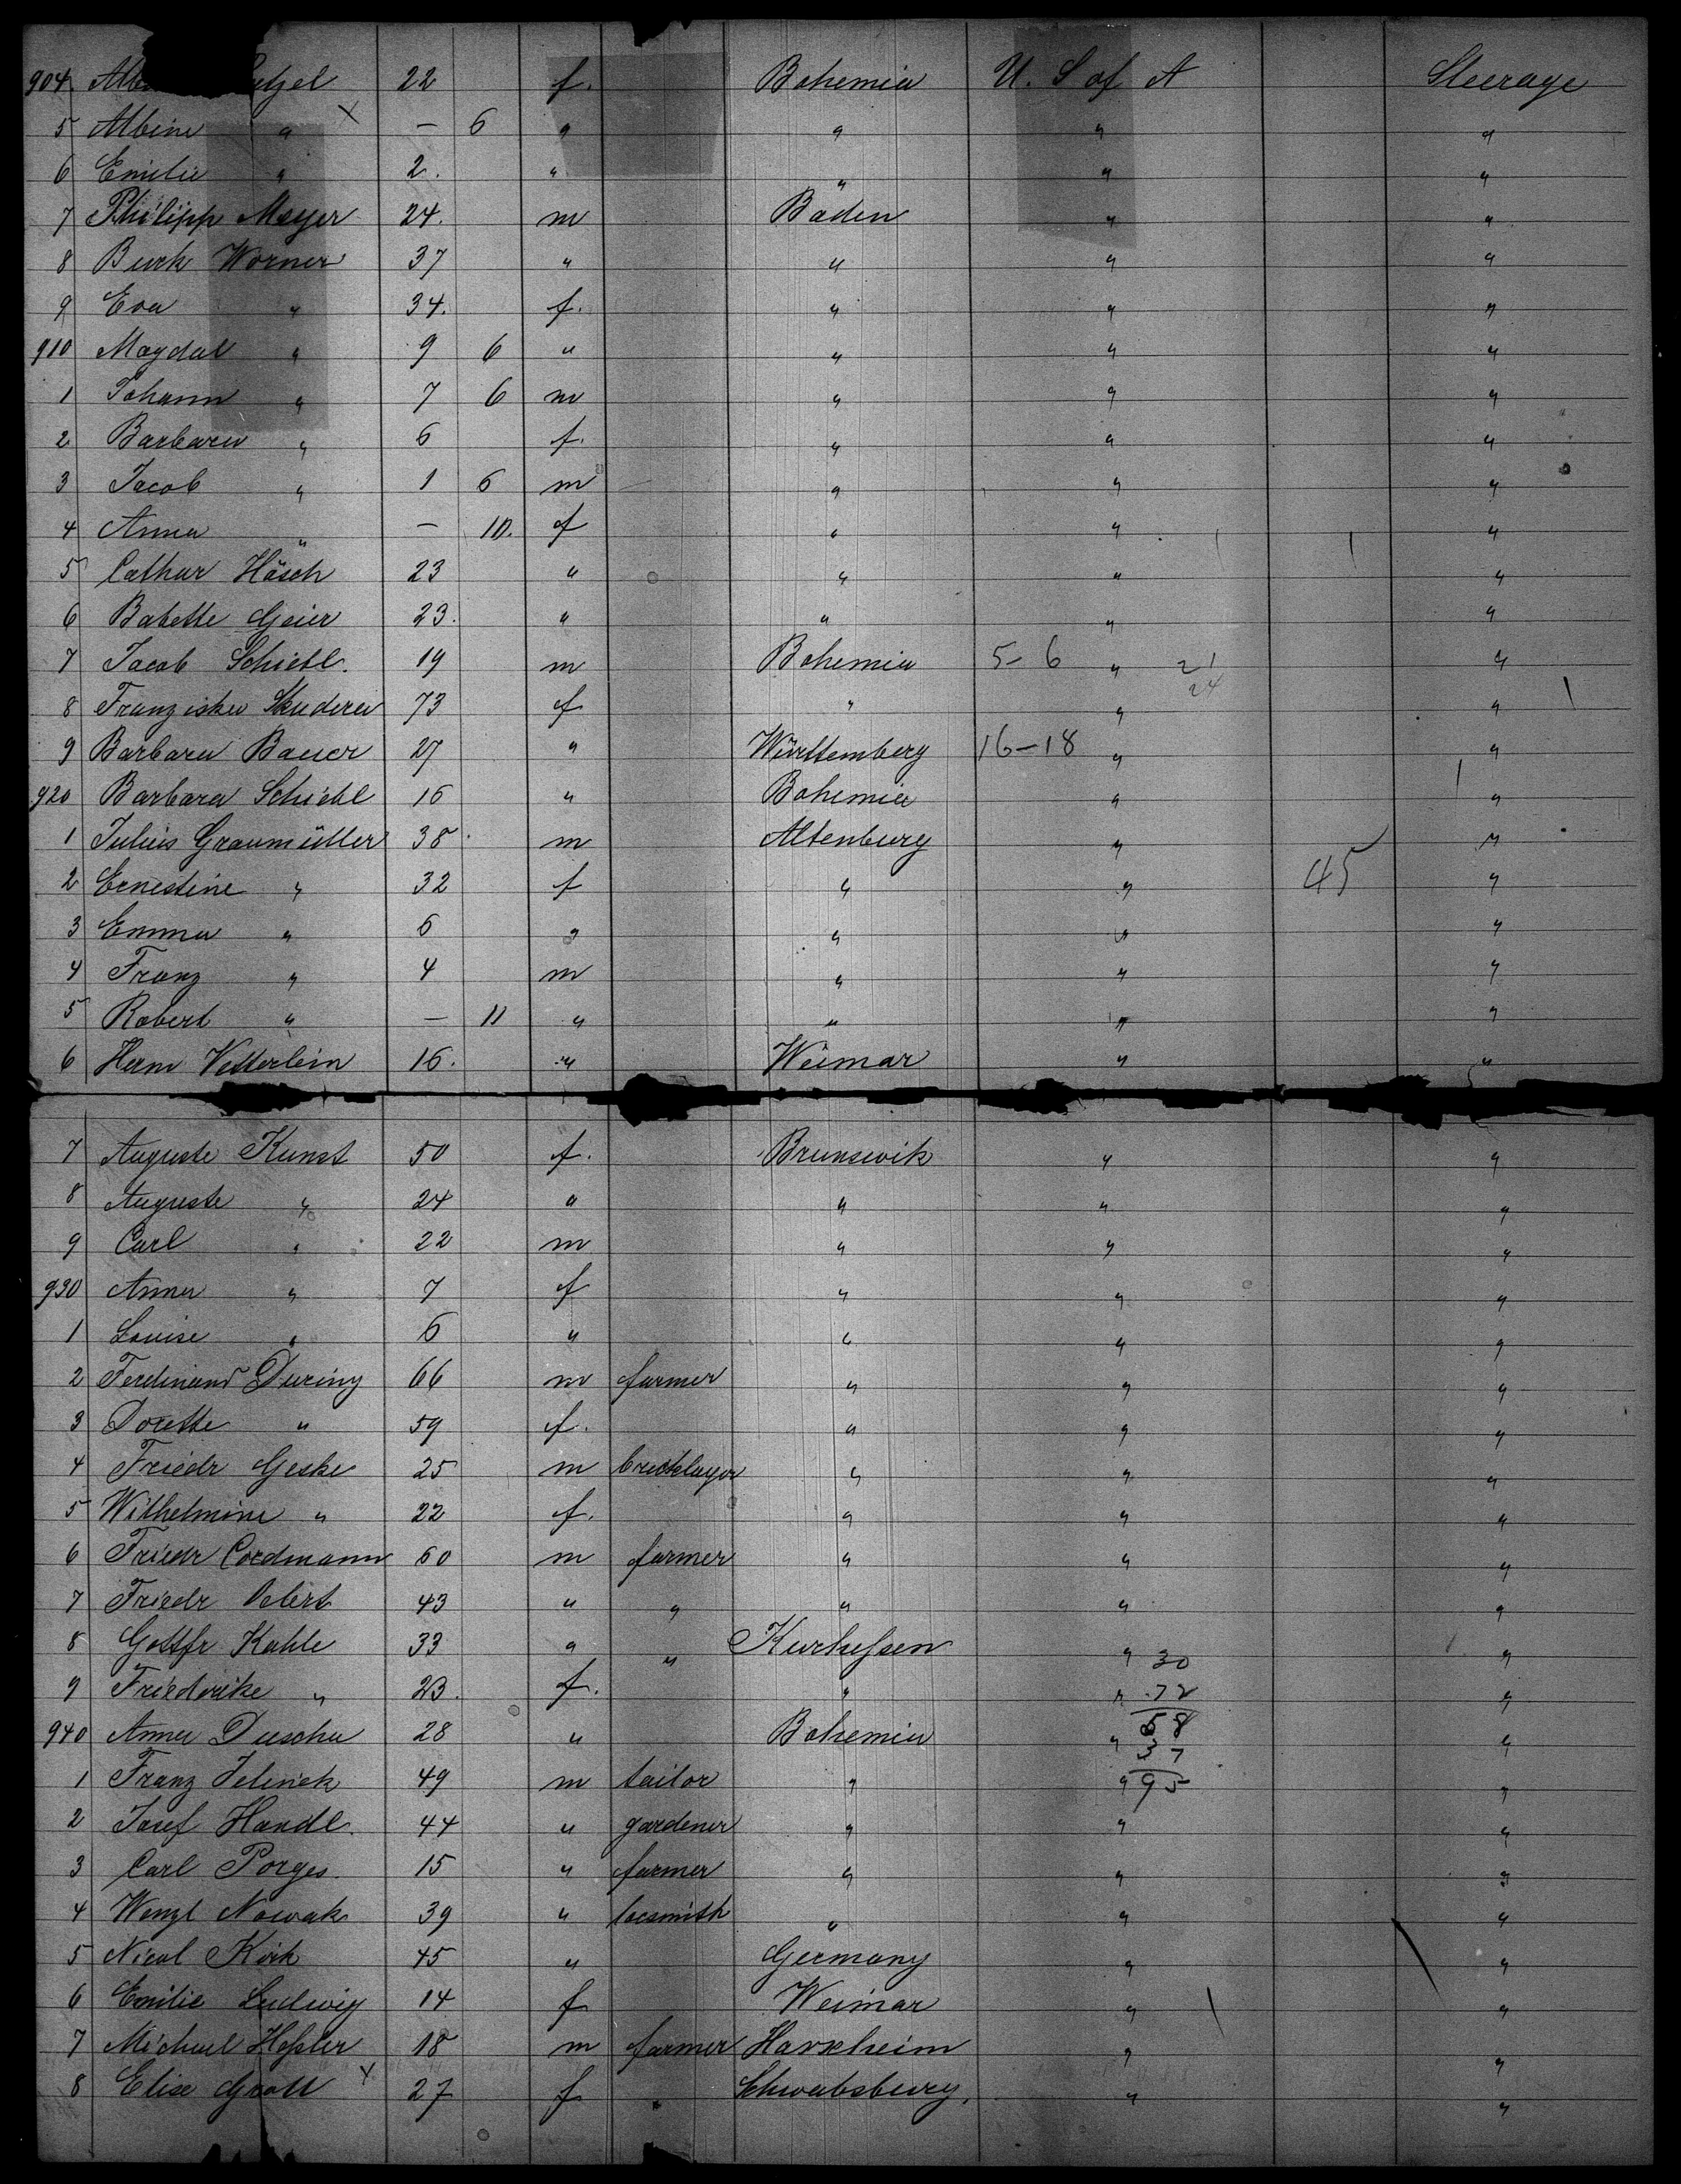 904 22 f. Bohemia U. S of A Steerage
5 Albine " X — 6 " " " "
6 Emilie " 2. " " " "
7 Philipp Meyer 24. m Baden " "
8 Burk Worner 37 " " " "
9 Eva " 34. f. " " "
910 Magdal " 9 6 " " " "
1 Johann " 7 6 m " " "
2 Barbara " 6 f. " " "
3 Jacob " 1 6 m " " "
4 Anna " — 10. f " " "
5 Cathar Hösch 23 " " " "
6 Babette Geier 23. " " " "
7 Jacob Schiebl. 19 m Bohemia 5-6 " 21 "
24
8 Franziska Skudera 73 f " " "
9 Barbara Bauer 27 " Württemberg 16-18 " "
920 Barbara Schiebl 16 " Bohemia " "
1 Julius Graumüller 38 m Altenburg " "
2 Ernestine " 32 f " " 45 "
3 Emma " 6 " " " "
4 Franz " 4 m " " "
5 Robert " — 11 " " " "
6 Herm Vetterlein 16. " Weimar " "
7 Auguste Kunst 50 f. Brunswik " "
8 Auguste " 24 " " " "
9 Carl " 22 m " " "
930 Anna " 7 f " " "
1 Louise " 6 " " " "
2 Ferdinand During 66 m farmer " " "
3 Dorette " 59 f. " " "
4 Friedr Geske 25 m bricklayer " " "
5 Wilhelmine " 22 f. " " "
6 Friedr Cordmann 60 m farmer " " "
7 Friedr 43 " " " " "
8 Gottfr Kahle 33 " " Kurhessen " 30 "
9 Friederike " 23. f. " " "
940 Anna Duscha 28 " Bohemia " 58 "
37
1 Franz Jelinek 49 m tailor " " 95 "
2 Josef Handl. 44 " gardener " " "
3 Carl Porges. 15 " farmer " " "
4 Wenzl Nowak 39 " locsmith " " "
5 Nicol 45 " Germany " "
6 Emilie Ludwig 14 f Weimar " "
7 Michael Hessler 18 m farmer Harxheim " "
8 Elise Groll X 27 f " Schwabsburg. " "